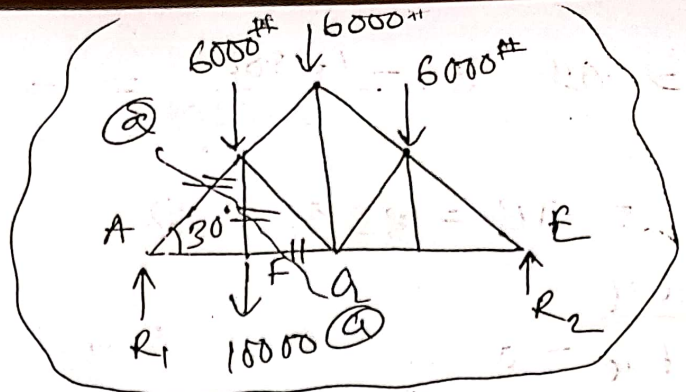 6000#
6000#
6000#
a
A
30°
E
F
a
R₁
10000
a
R₂